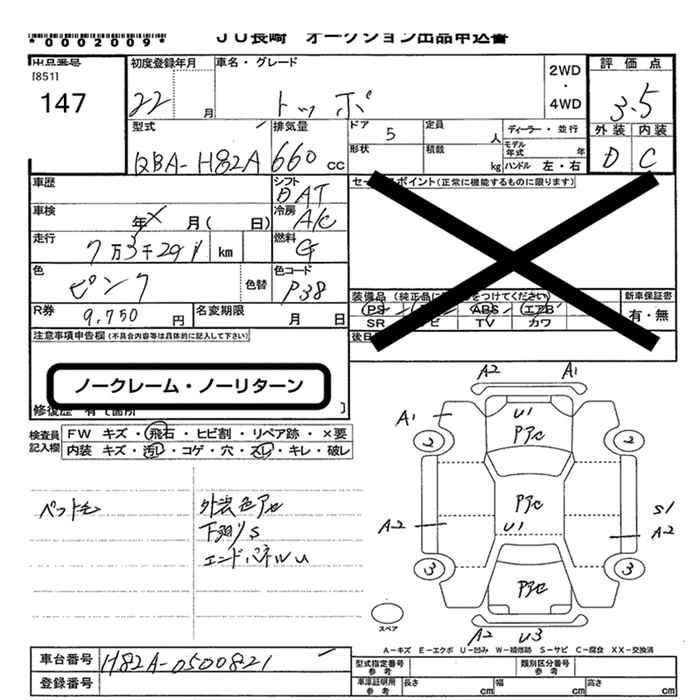 *0002009*
JU長崎 オークション出品申込書
出品番号
[851]
147
初度登録年月
22 月
車名・グレード
トッポ
2WD
・
4WD
評価点
3.5
外装 内装
D C
型式
QBA-H82A
排気量
660 cc
ドア 5
定員 人
形状
積載 kg
ディーラー・並行
モデル年式 年
ハンドル 左・右
車歴
シフト
DAT
セールスポイント(正常に機能するものに限ります)
車検 年 X 月( 日)
冷房
A/C
走行 7万3千291 km
燃料
G
色 ピンク 色替
色コード
P38
装備品 (純正品に をつけてください)
PS ABS エアB
SR ナビ TV カワ
新車保証書
有・無
R券 9,750 円
名変期限 月 日
注意事項申告欄(不具合内容等は具体的に記入して下さい)
後日
ノークレーム・ノーリターン
修復歴 有〔箇所 〕
検査員記入欄
FW キズ・飛石・ヒビ割・リペア跡・×要
内装 キズ・汚レ・コゲ・穴・スレ・キレ・破レ
ペット毛
外装色アセ
下廻りS
エンドパネルU
A2 A1
A1 U1
Pアセ
2 2
Pアセ
A2 U1
S1
A2
3 3
Pアセ
スペア
A2 U3
A-キズ E-エクボ U-凹み W-補修跡 S-サビ C-腐食 XX-交換済
車台番号 H82A-0500821
登録番号
型式指定番号 参考
類別区分番号 参考
車庫証明用 参考 長さ cm 幅 cm 高さ cm